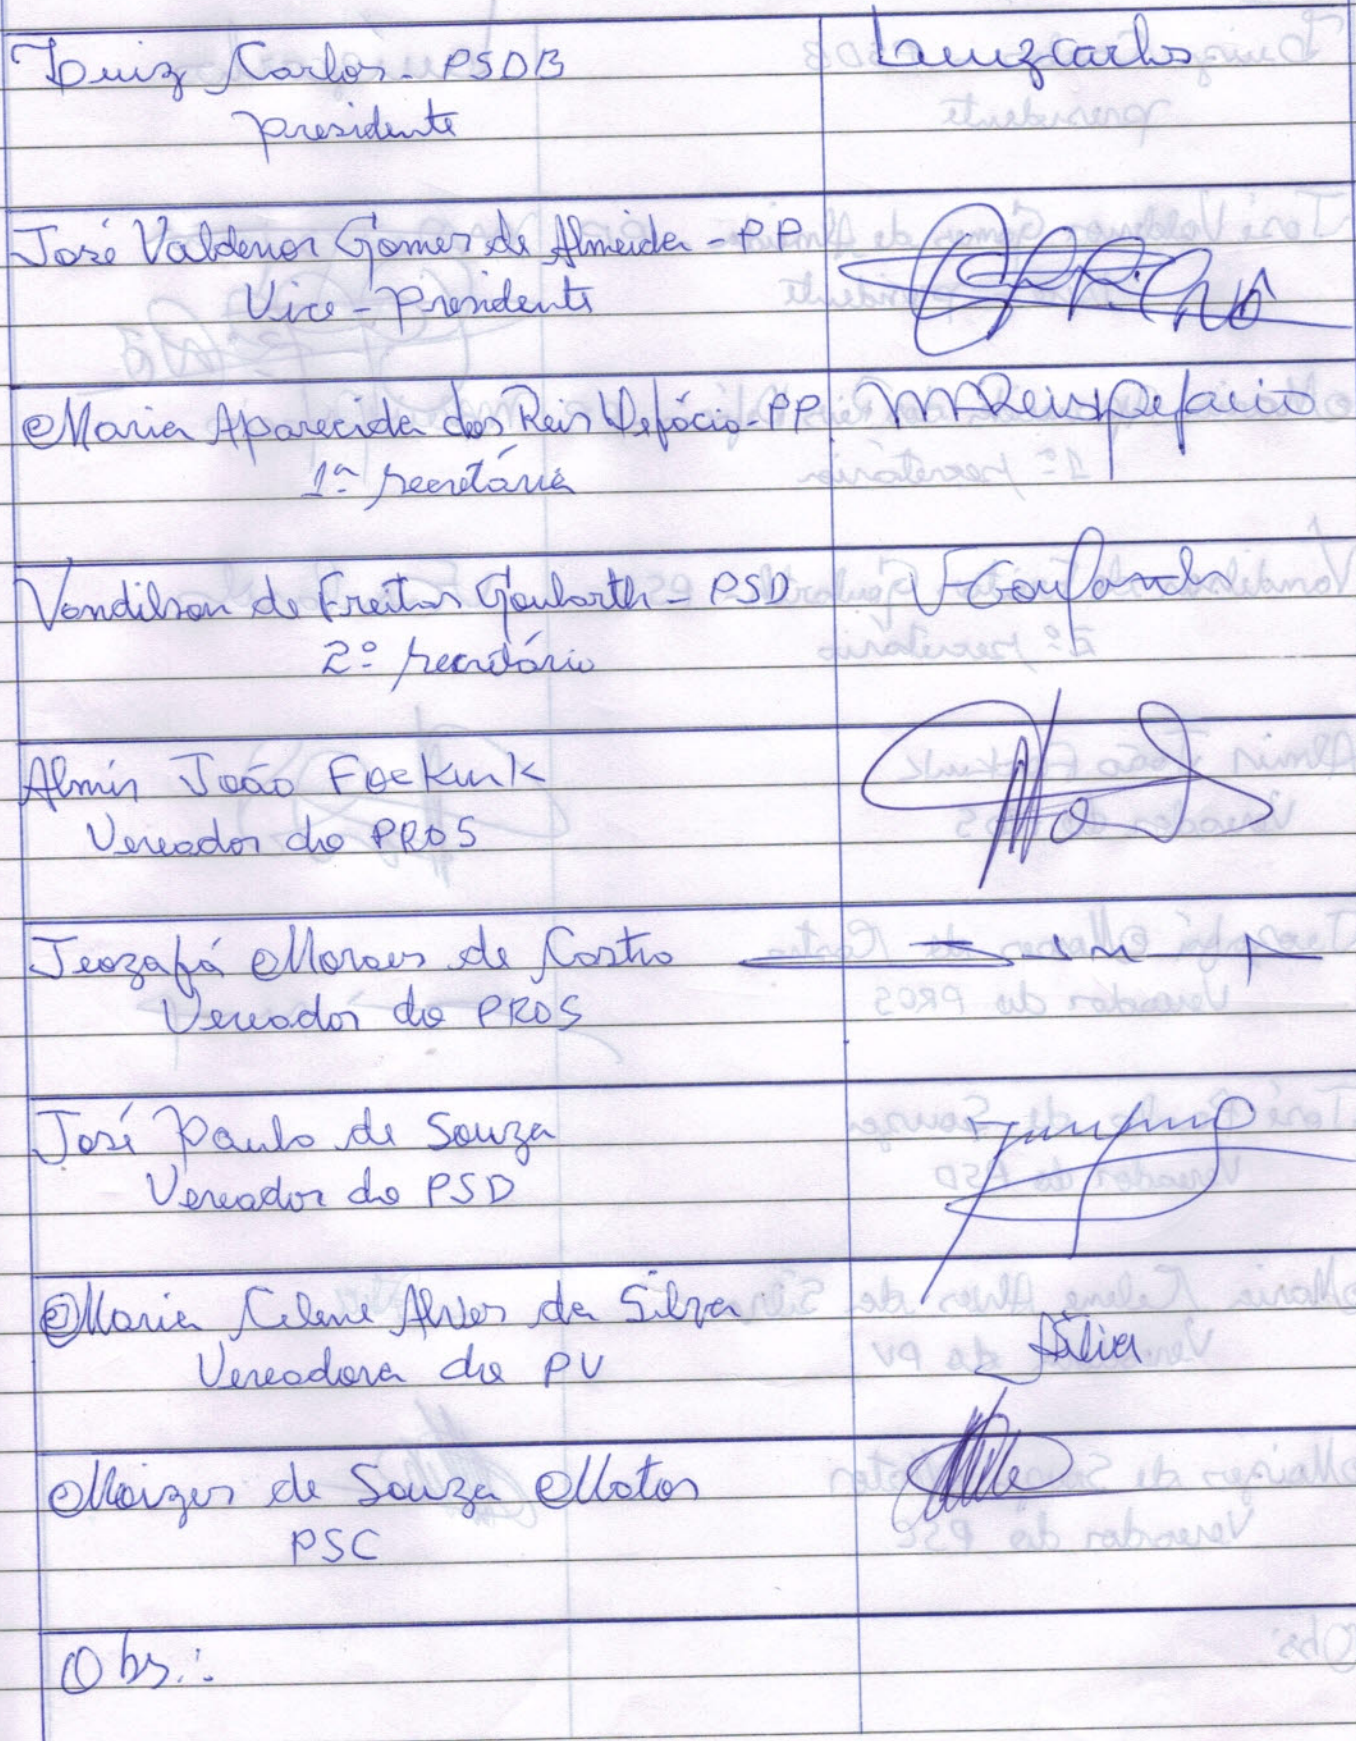 Luiz Carlos - PSDB Luizcarlos
presidente
José Valdenor Gomes de Almeida - PP
Vice - Presidente
Maria Aparecida dos Reis Pefócio - PP MReispefocio
1ª secretária
Vondilson de Freitas Goularth - PSD
2º secretário
Almir João Foekink
Vereador do PROS
Jeozafá Moraes de Castro
Vereador do PROS
José Paulo de Souza
Vereador do PSD
Maria Celene Alves da Silva
Vereadora do PV
Moizes de Souza Matos
PSC
Obs.: